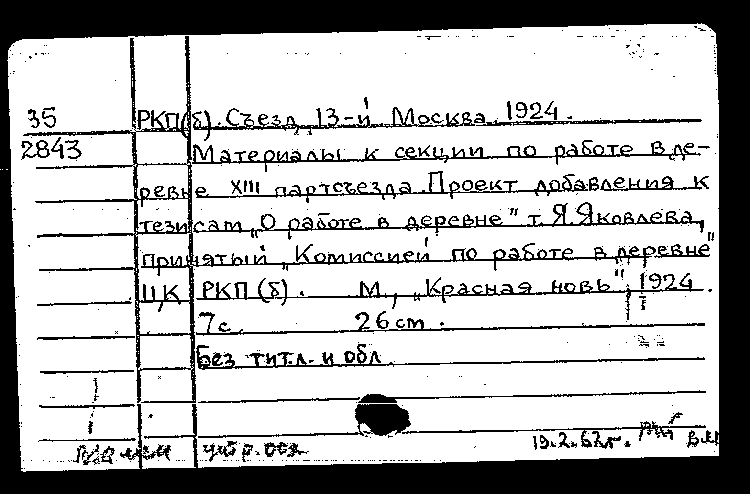 35 РКП(б). Съезд, 13-й. Москва. 1924.
2843 Материалы к секции по работе в де-
ревне XIII партсъезда. Проект добавления к
тезисам „О работе в деревне" т. Я. Яковлева,
принятый „Комиссией по работе в деревне"
ЦК РКП(б). М., „Красная новь", 1924.
7с. 26cm.
Без тит.л. и обл.
19.2.62г.